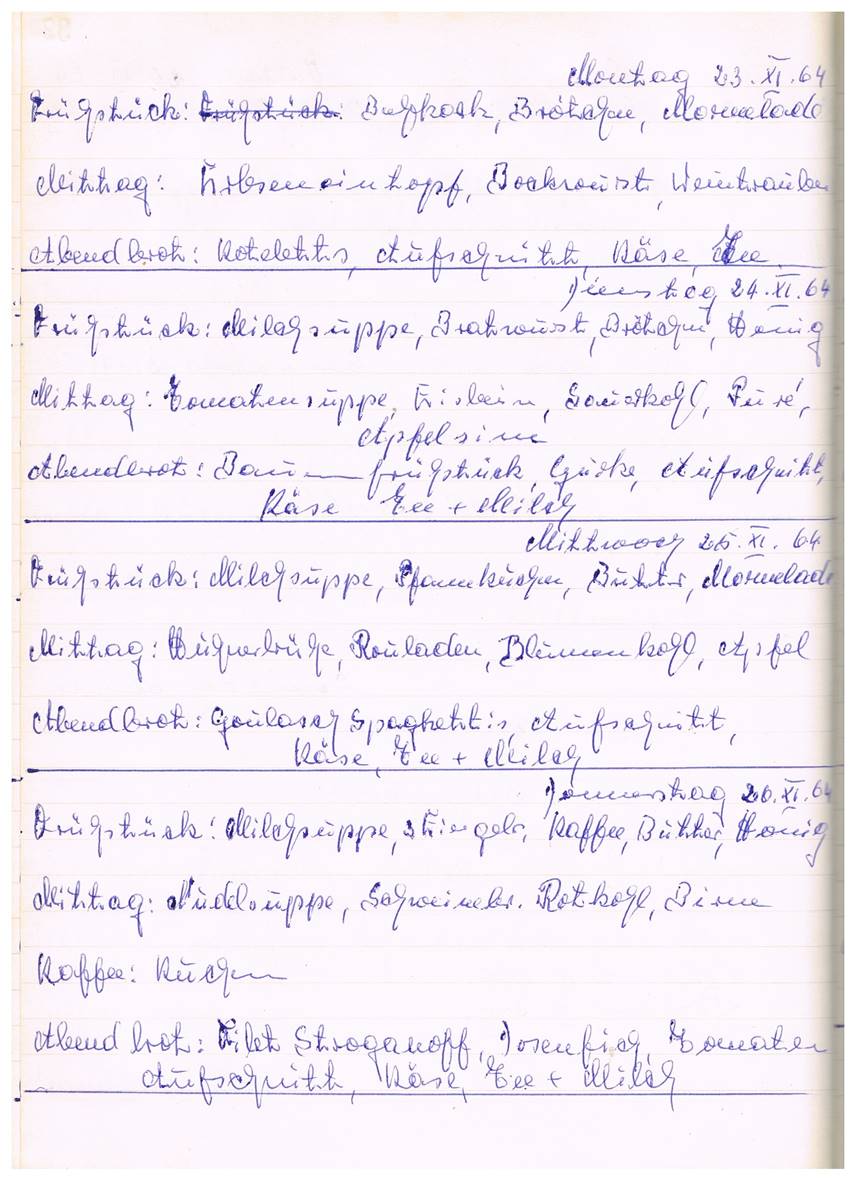 Montag 23.XI.64
Frühstück: Frühstück: Bugkock, Brötchen, Marmelade
Mittag: Erbseneintopf, Bockwurst, Weintrauben
Abendbrot: Koteletts, Aufschnitt, Käse, Tee
Dienstag 24.XI.64
Frühstück: Milchsuppe, Bratwurst, Brötchen, Honig
Mittag: Tomatensuppe, Eisbein, Sauerkohl, Püré,
Apfelsine
Abendbrot: Bauernfrühstück, Gurke, Aufschnitt,
Käse Tee + Milch
Mittwoch 25.XI.64
Frühstück: Milchsuppe, Pfannkuchen, Butter, Marmelade
Mittag: Hühnerbrühe, Rouladen, Blumenkohl, Apfel
Abendbrot: Goulasch Spaghettis, Aufschnitt,
Käse, Tee + Milch
Donnerstag 26.XI.64
Frühstück: Milchsuppe, 3 Eier gebr. Kaffee, Butter, Honig
Mittag: Nudelsuppe, Schweinebr. Rotkohl, Birne
Kaffee: Kuchen
Abendbrot: Filet Stroganoff, Dosenfisch, Tomaten
Aufschnitt, Käse, Tee + Milch